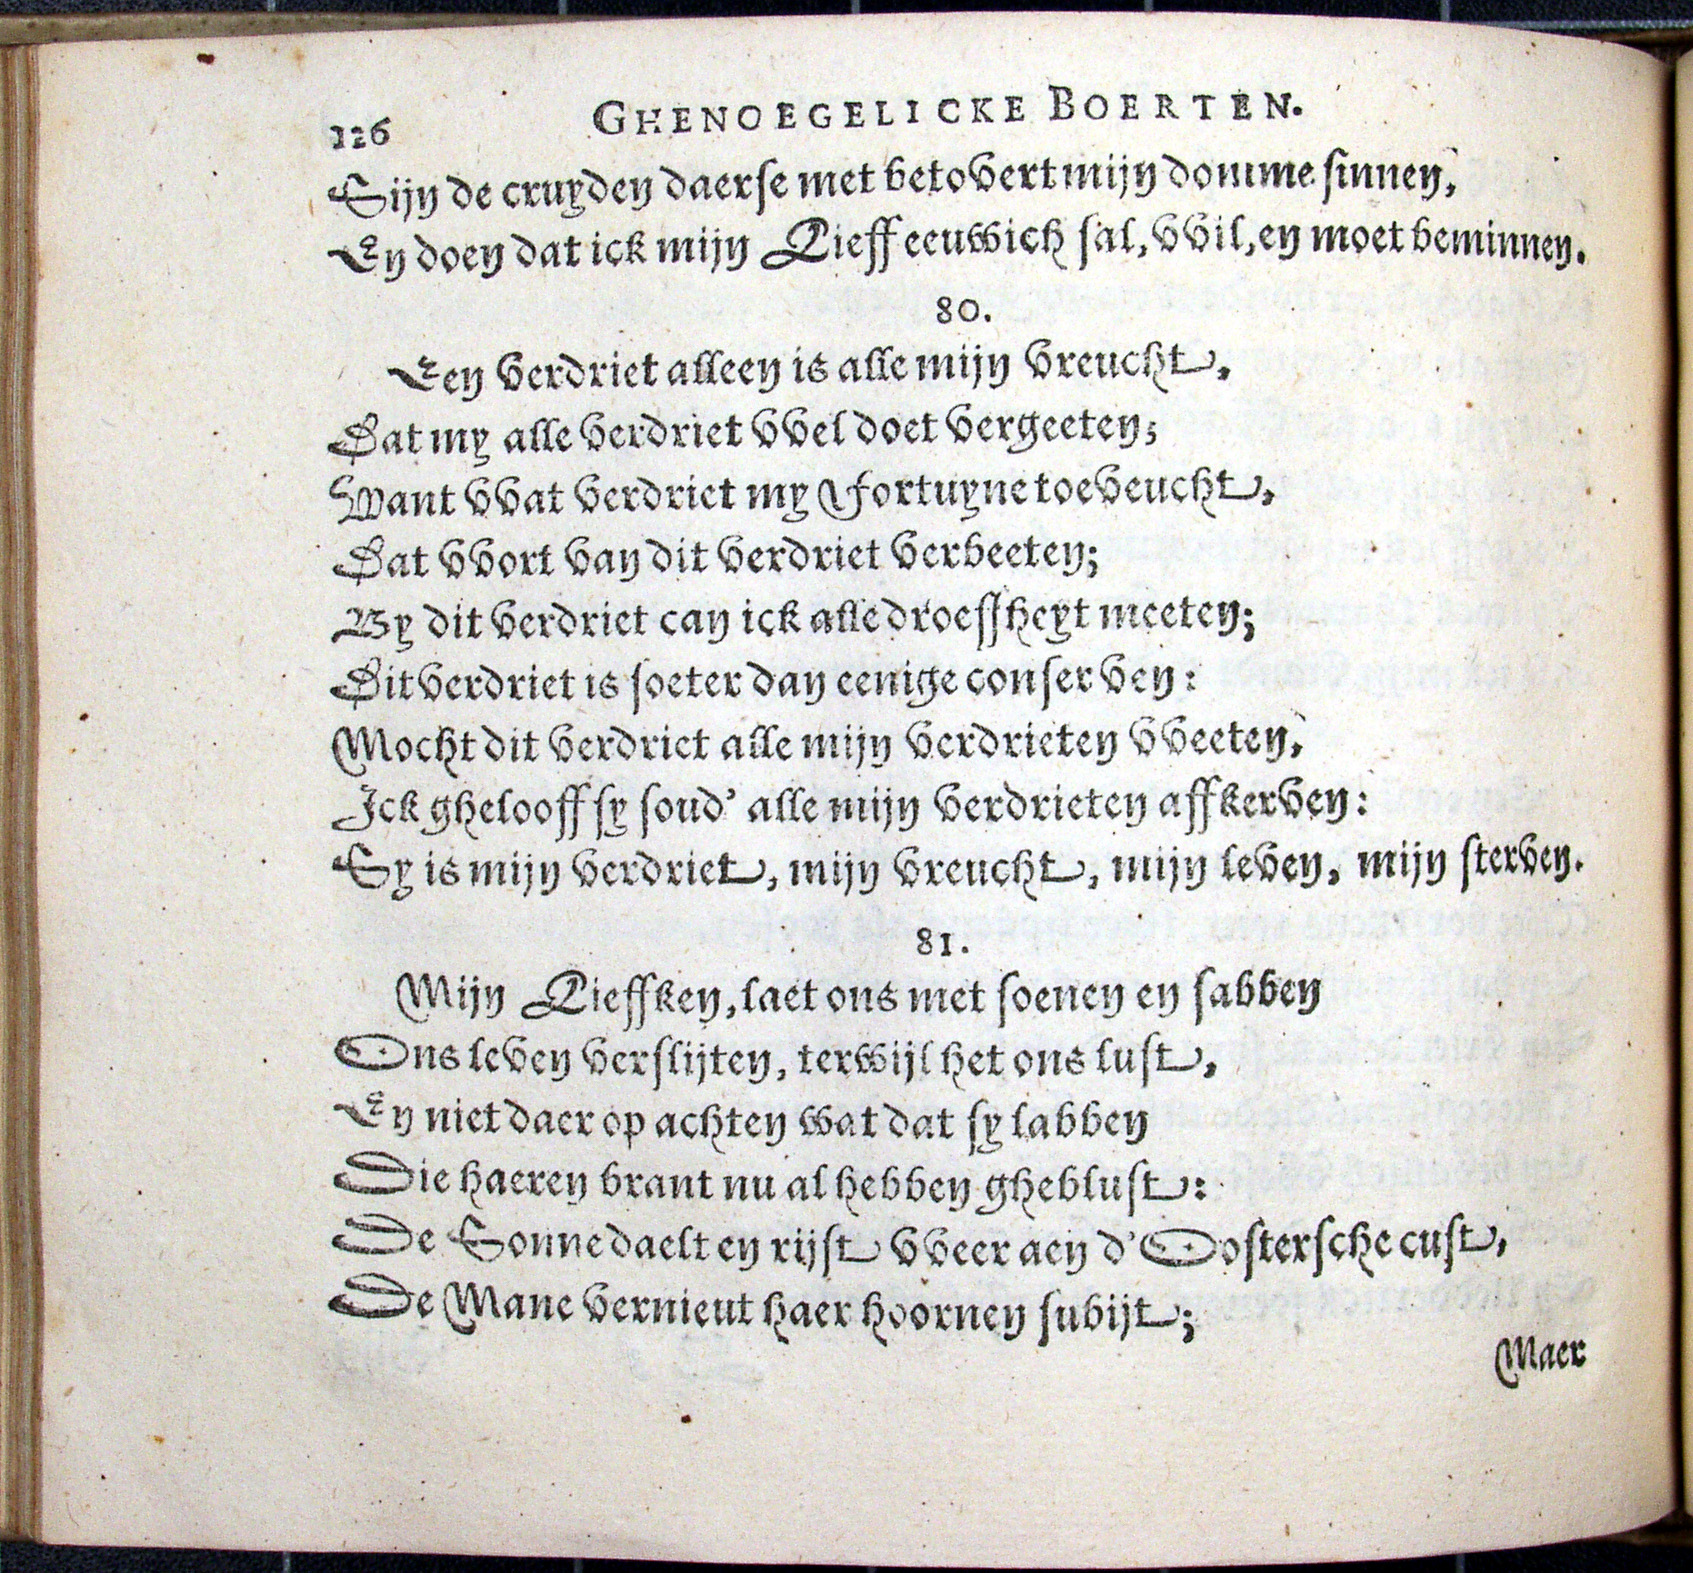 126 GHENOEGELICKE BOERTEN.
Sijn de cruyden daerse met betovert mijn domme sinnen,
En doen dat ick mijn Lieff eeuwich sal, vvil, en moet beminnen.
80.
Een verdriet alleen is alle mijn vreucht,
Dat my alle verdriet vvel doet vergeeten;
Want vvat verdriet my Fortuyne toeveucht,
Dat vvort van dit verdriet verbeeten;
By dit verdriet can ick alle droeffheyt meeten;
Dit verdriet is soeter dan eenige conserven:
Mocht dit verdriet alle mijn verdrieten vveeten,
Ick ghelooff sy soud' alle mijn verdrieten affkerven:
Sy is mijn verdriet, mijn vreucht, mijn leven, mijn sterven.
81.
Mijn Lieffken, laet ons met soenen en sabben
Ons leven verslijten, terwijl het ons lust,
En niet daer op achten wat dat sy labben
Die haeren brant nu al hebben gheblust:
De Sonne daelt en rijst vveer aen d'Oostersche cust,
De Mane vernieut haer hoornen subijt;
Maer